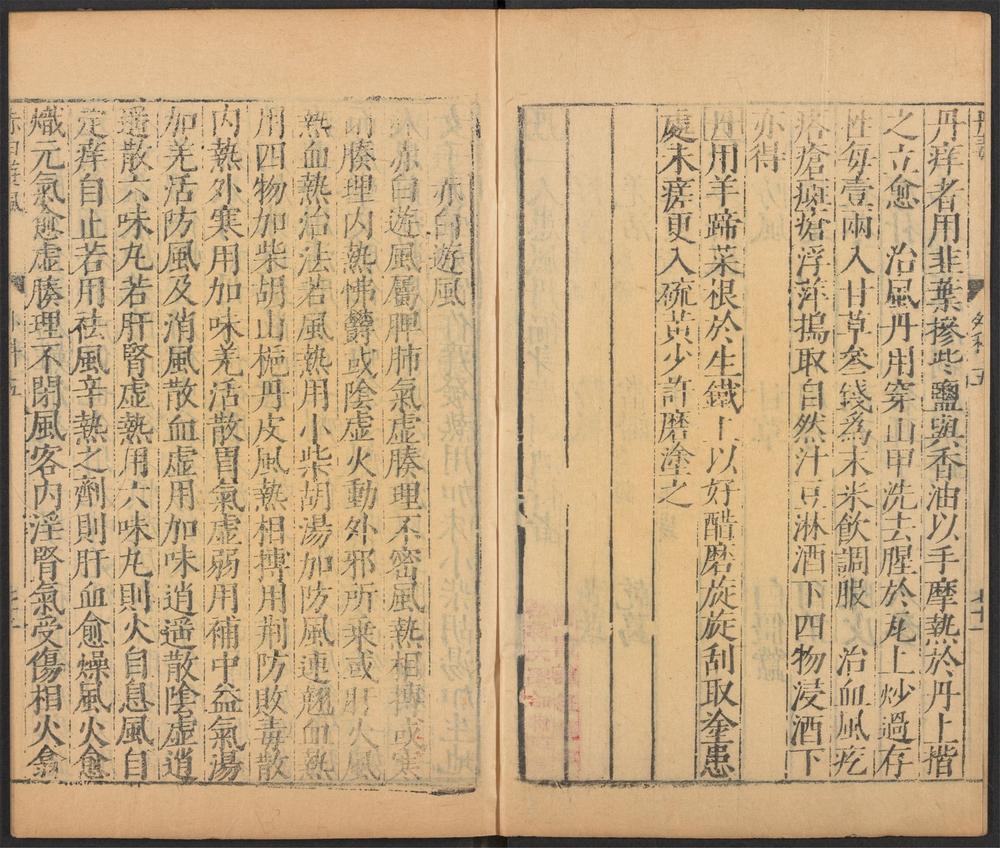 丹痒者用韭葉摻些鹽與香油以手摩熱於丹上揩
之立愈　治風丹用穿山甲洗去腥於瓦上炒過存
性每壹兩入甘草叄錢為末米飲調服　治血風疙
疙瘡瘼瘡浮萍搗取自然汁豆淋酒下四物浸酒下
亦得
丹用羊蹄菜根於生鐵上以好醋磨旋旋刮取塗患
處未瘥更入硫黃少許磨塗之
赤白遊風
夫赤白遊風屬脾肺氣虛腠理不密風熱相搏或寒
閉腠理內熱怫欝或陰虛火動外邪所乗或肝火風
熱血熱治法若風熱用小柴胡湯加防風連翹血熱
用四物加柴胡山梔丹皮風熱相搏用荆防敗毒散
内熱外寒用加味羌活散胃氣虛弱用補中益氣湯
加羌活防風及消風散血虛用加味逍遥散陰虛逍
遥散六味丸若肝腎虛熱用六味丸則火自息風自
定痒自止若用袪風辛熱之劑則肝血愈燥風火愈
熾元氣愈虛腠理不閉風客内淫腎氣受傷相火翕